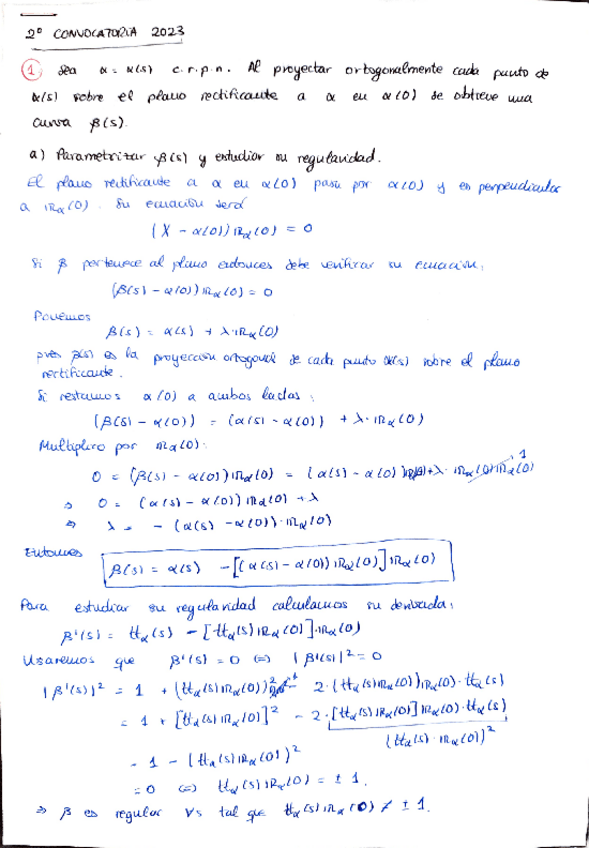 2º CONVOCATORIA 2023
① Sea α = α(s) c.r.p.n. Al proyectar ortogonalmente cada punto de
α(s) sobre el plano rectificante a α en α(0) se obtiene una
curva β(s).
a) Parametrizar β(s) y estudiar su regularidad.
El plano rectificante a α en α(0) pasa por α(0) y es perpendicular
a 𝕟α(0). Su ecuación será
(X - α(0)) 𝕟α(0) = 0
Si β pertenece al plano entonces debe verificar su ecuación:
(β(s) - α(0)) 𝕟α(0) = 0
Ponemos
β(s) = α(s) + λ·𝕟α(0)
pues β(s) es la proyección ortogonal de cada punto α(s) sobre el plano
rectificante.
Si restamos α(0) a ambos lados:
(β(s) - α(0)) = (α(s) - α(0)) + λ·𝕟α(0)
Multiplico por 𝕟α(0):
0 = (β(s) - α(0)) 𝕟α(0) = (α(s) - α(0)) 𝕟α(0) + λ·𝕟α(0) 𝕟α(0) 1
⇒ 0 = (α(s) - α(0)) 𝕟α(0) + λ
⇒ λ = - (α(s) - α(0))·𝕟α(0)
Entonces
β(s) = α(s) - [(α(s) - α(0)) 𝕟α(0)] 𝕟α(0)
Para estudiar su regularidad calculamos su derivada:
β'(s) = 𝕥α(s) - [𝕥α(s) 𝕟α(0)]·𝕟α(0)
Usaremos que β'(s) = 0 ⇔ |β'(s)|² = 0
|β'(s)|² = 1 + (𝕥α(s) 𝕟α(0))² - 2·(𝕥α(s) 𝕟α(0)) 𝕟α(0)·𝕥α(s)
= 1 + [𝕥α(s) 𝕟α(0)]² - 2·[𝕥α(s) 𝕟α(0)] 𝕟α(0)·𝕥α(s)
(𝕥α(s)·𝕟α(0))²
= 1 - (𝕥α(s) 𝕟α(0))²
= 0 ⇔ 𝕥α(s) 𝕟α(0) = ± 1.
⇒ β es regular ∀s tal que 𝕥α(s) 𝕟α(0) ≠ ± 1.